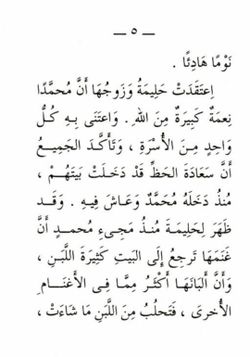 — ٥ —
نَوْمًا هَادِئًا .
اِعتَقَدَتْ حَلِيمَةُ وَزَوجُهَا أَنَّ مُحمَّدًا
نِعمَةٌ كَبِيرَةٌ مِنَ اللهِ . وَاعتَنَى بِهِ كُلُّ
وَاحِدٍ مِنَ الأُسْرَةِ ، وَتَأَكَّدَ الجَمِيعُ
أَنَّ سَعَادَةَ الحَظِّ قَدْ دَخَلَتْ بَيتَهُمْ ،
مُنذُ دَخَلَهُ مُحَمَّدٌ وَعَاشَ فِيهِ . وَقَد
ظَهَرَ لِحَلِيمَةَ مُنذُ مَجِىءِ مُحمدٍ أَنَّ
غَنَمَهَا تَرجِعُ إِلَى البَيتِ كَثِيرَةَ اللَّبَنِ ،
وَأَنَّ أَلبَانَهَا أَكْثَرُ مِمَّا فِى الأَغْنَامِ
الأُخرَى ، فَتَحلُبُ مِنَ اللَّبَنِ مَا شَاءَتْ ،